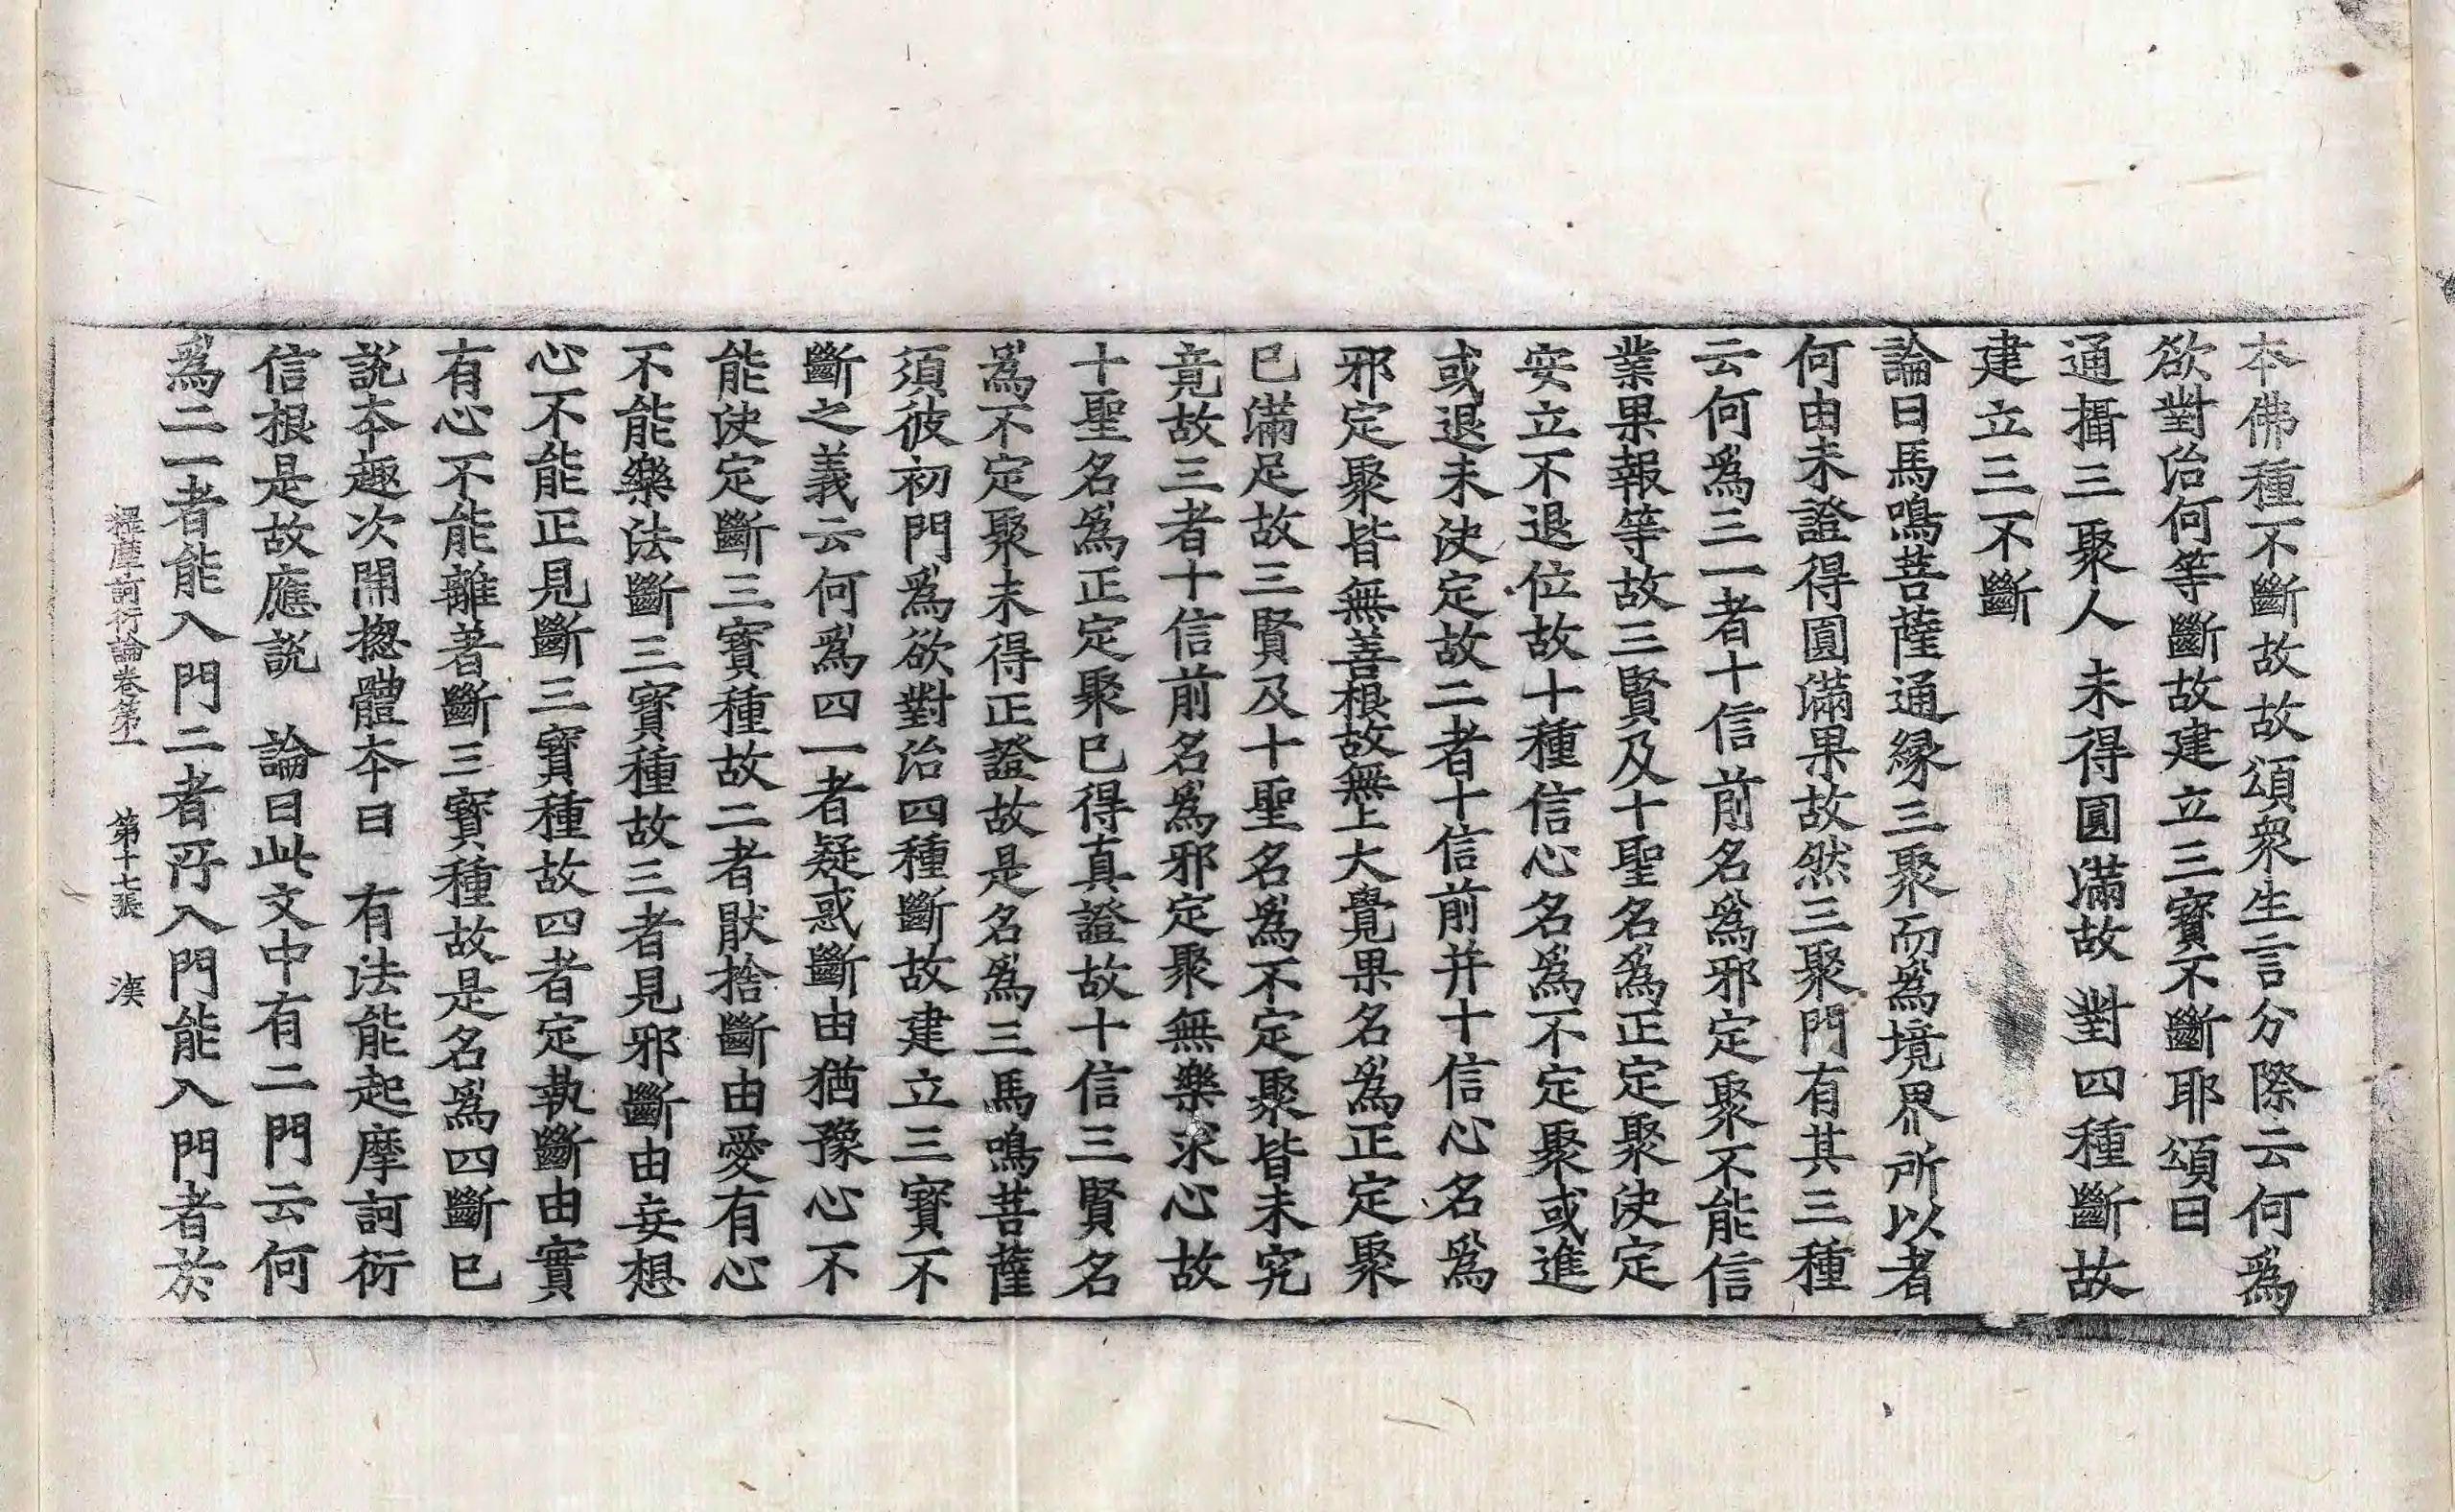 本佛種不斷故故頌衆生言分際云何爲
欲對治何等斷故建立三寶不斷耶頌曰
通攝三聚人　未得圓滿故　對四種斷故
建立三不斷
論曰馬鳴菩薩通緣三聚而爲境界所以者
何由未證得圓滿果故然三聚門有其三種
云何爲三一者十信前名爲邪定聚不能信
業果報等故三賢及十聖名爲正定聚決定
安立不退位故十種信心名爲不定聚或進
或退未決定故二者十信前并十信心名爲
邪定聚皆無善根故無上大覺果名爲正定聚
已滿足故三賢及十聖名爲不定聚皆未究
竟故三者十信前名爲邪定聚無樂求心故
十聖名爲正定聚已得真證故十信三賢名
爲不定聚未得正證故是名爲三馬鳴菩薩
須彼初門爲欲對治四種斷故建立三寶不
斷之義云何爲四一者疑惑斷由猶豫心不
能決定斷三寶種故二者猒捨斷由愛有心
不能樂法斷三寶種故三者見邪斷由妄想
心不能正見斷三寶種故四者定執斷由實
有心不能離著斷三寶種故是名爲四斷已
說本趣次開揔體本曰　有法能起摩訶衍
信根是故應說　論曰此文中有二門云何
爲二一者能入門二者所入門能入門者於
釋摩訶衍論卷第一　第十七張　漢